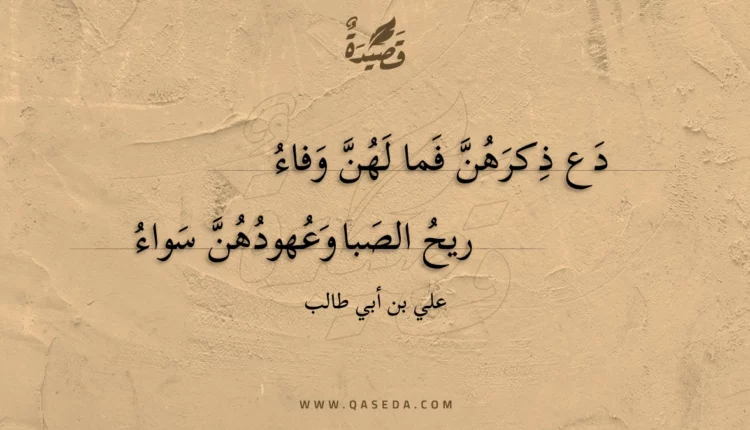 قَصِيْدَةٌ
دَع ذِكرَهُنَّ فَما لَهُنَّ وَفاءُ
ريحُ الصَبا وَعُهودُهُنَّ سَواءُ
علي بن أبي طالب
WWW.QASEDA.COM